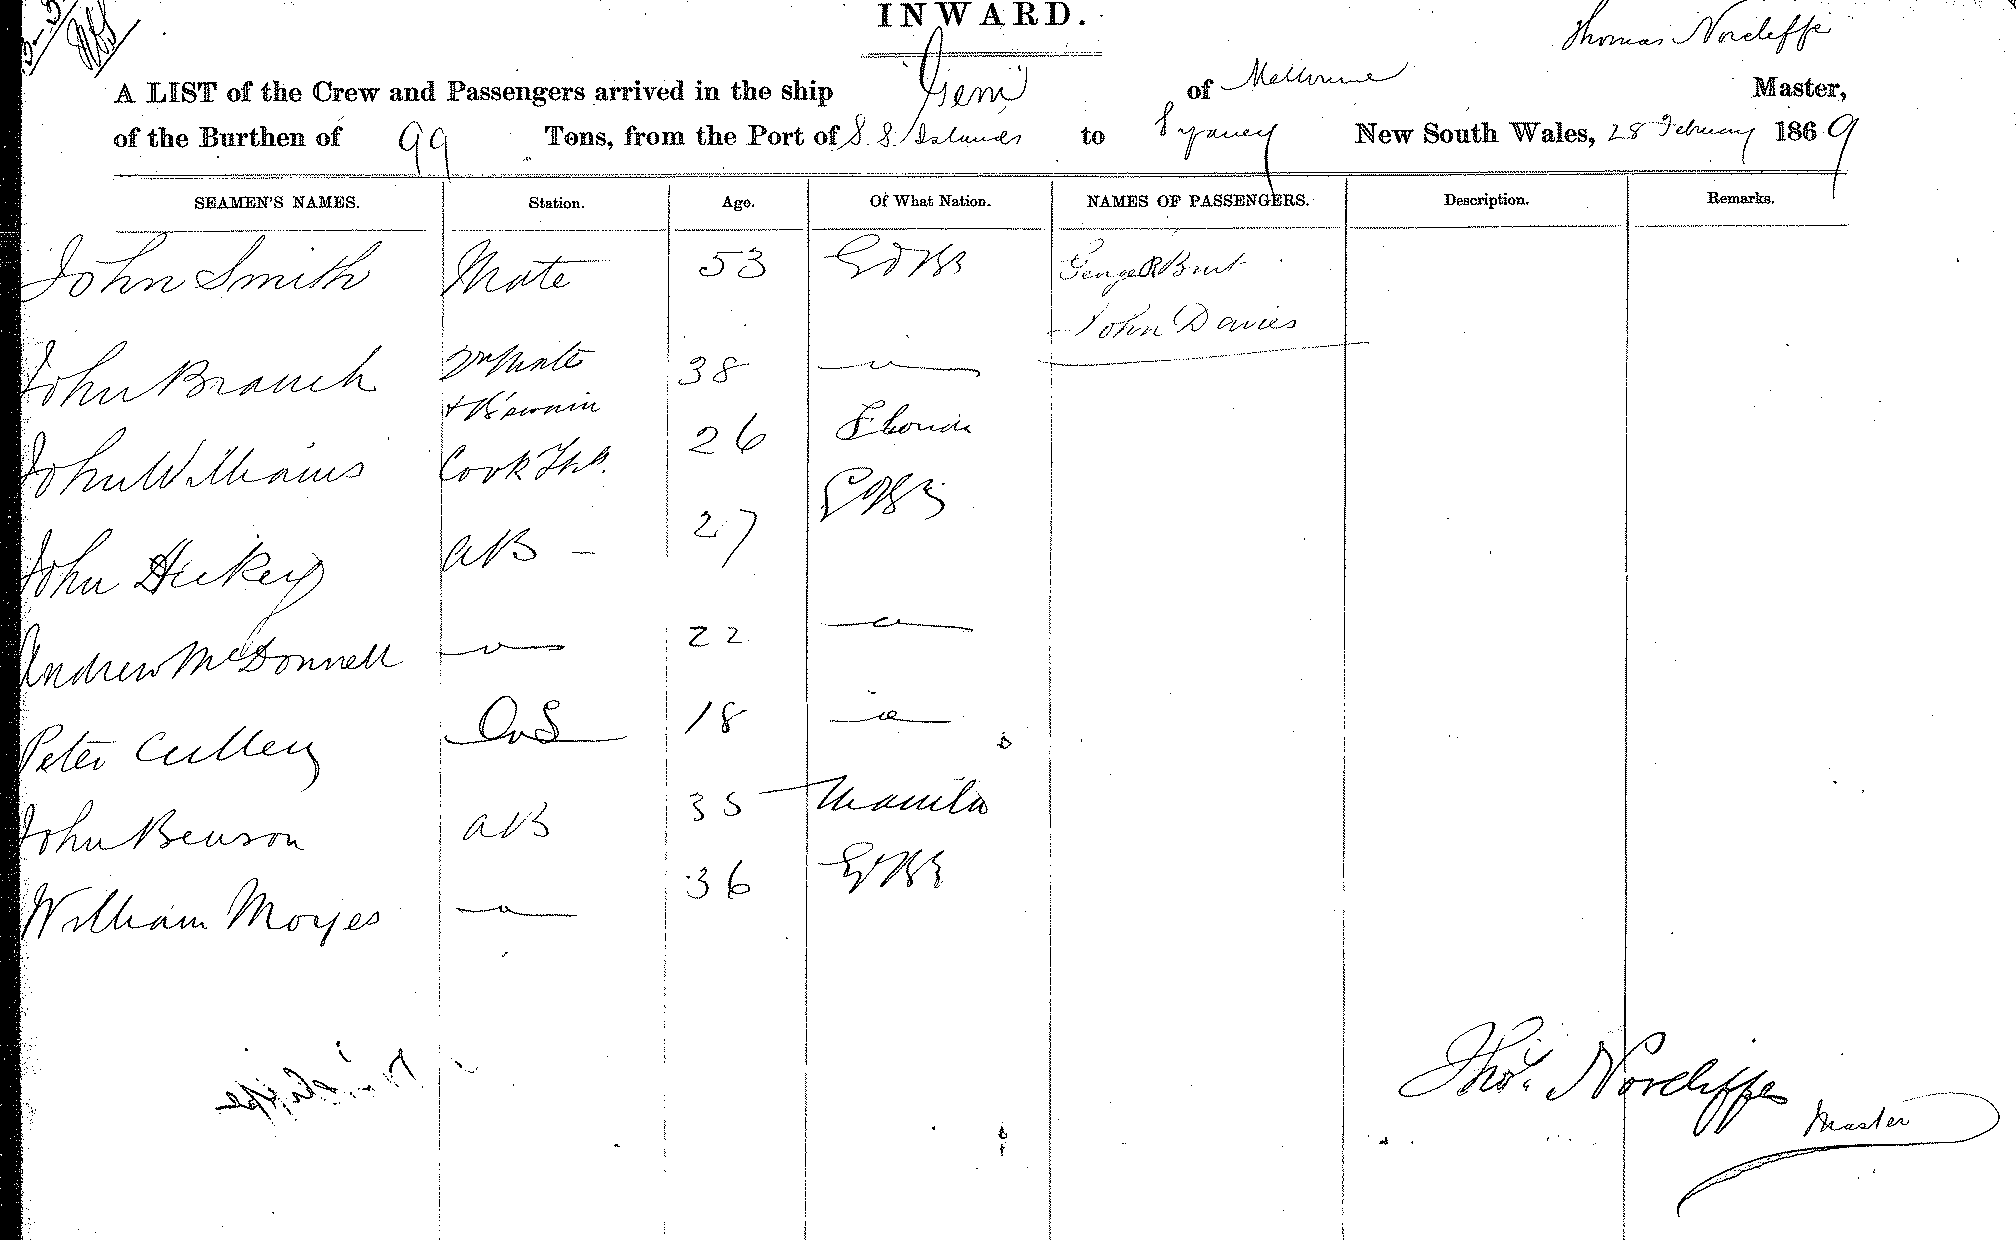 INWARD.
Thomas Norcliffe
A LIST of the Crew and Passengers arrived in the ship "Gem" of Melbourne Master,
of the Burthen of 99 Tons, from the Port of S. S. Islands to Sydney New South Wales, 28 February 1869
SEAMEN'S NAMES. Station. Age. Of What Nation. NAMES OF PASSENGERS. Description. Remarks.
John Smith Mate 53 Gt Br George R Burt
John Davies
John Branch 2nd Mate 38
& B'swain
John Williams Cook 26 Florida
John Hickey AB - 27 Gt Br
Andrew McDonnell 22
Peter Cullen OS 18
John Benson AB 35 Manila
William Moyes 36 Gt Br
Thos. Norcliffe
Master